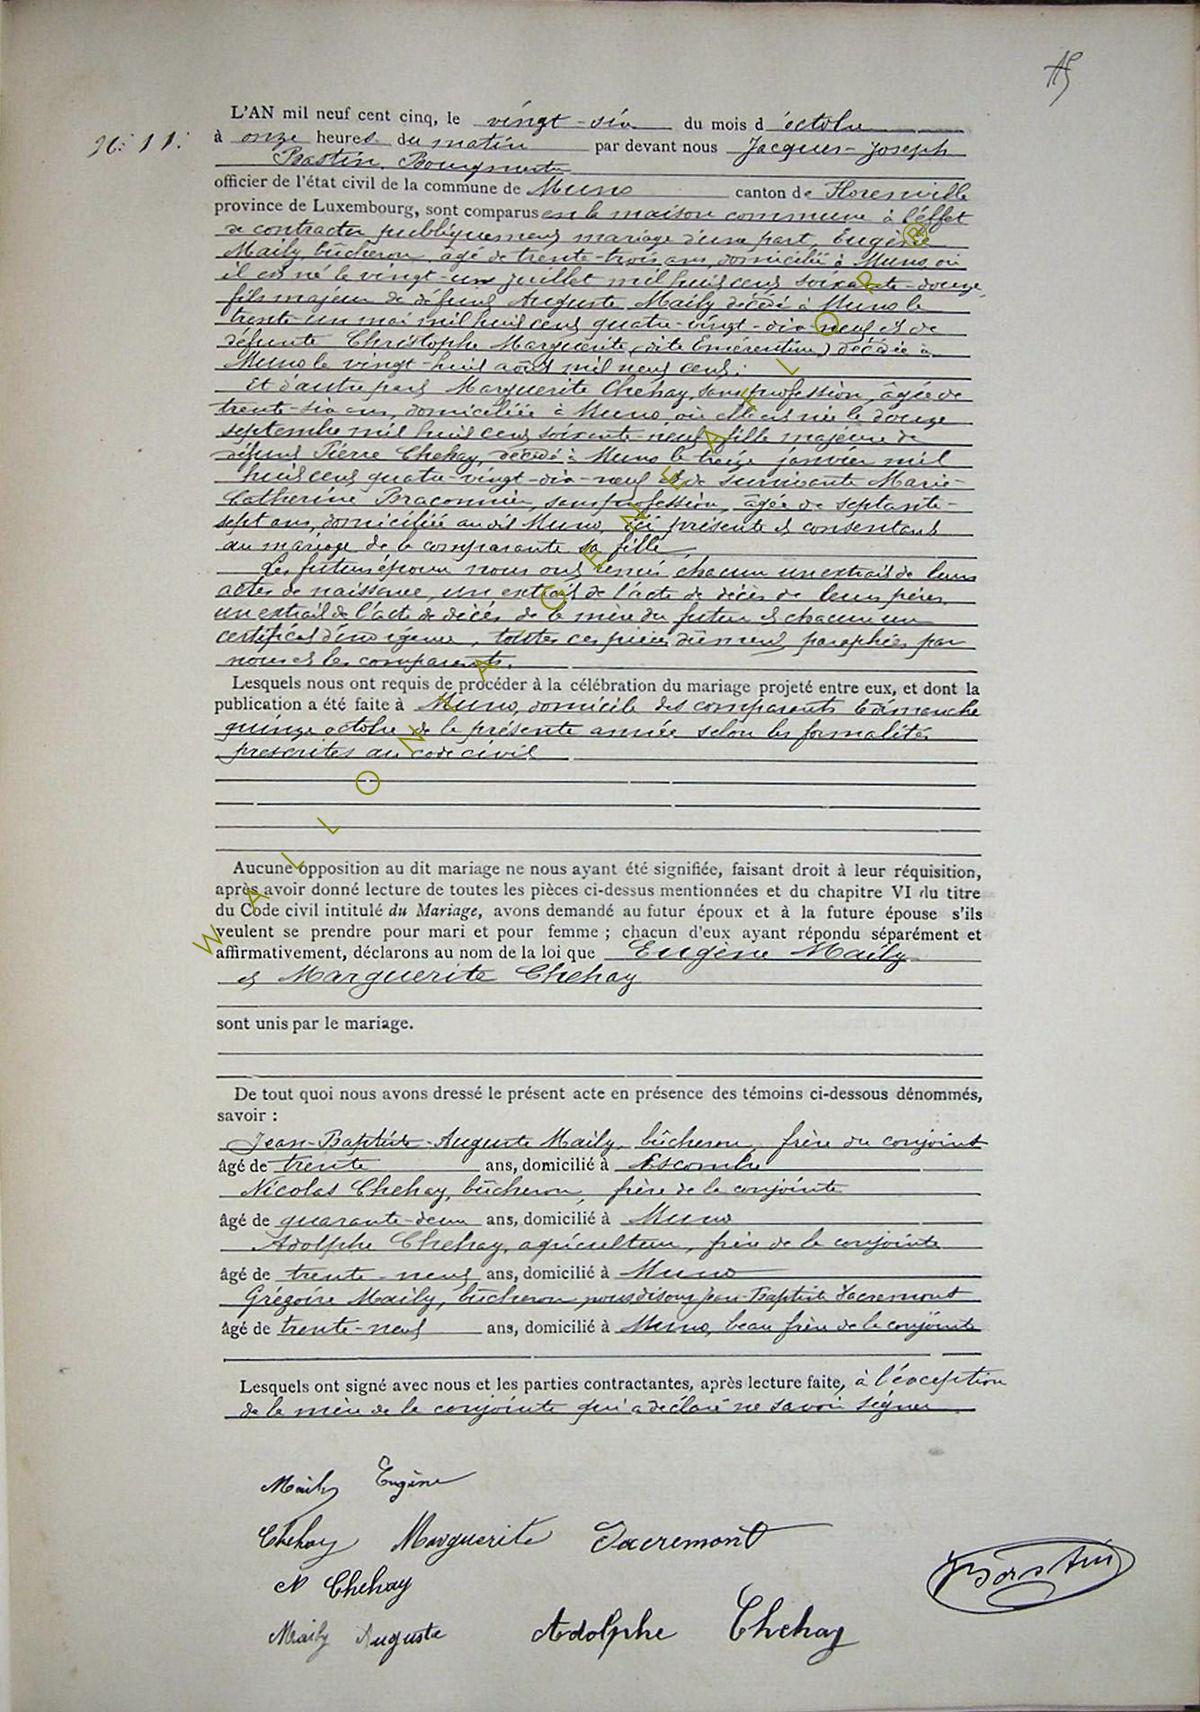 N: 11.
L'AN mil neuf cent cinq, le vingt-six du mois d'octobre
à onze heures du matin par devant nous Jacques-Joseph
Bastin, Bourgmestre
officier de l'état civil de la commune de Muno canton de Florenville
province de Luxembourg, sont comparus en la maison commune à l'effet
de contracter publiquement mariage d'une part, Eugène
Maily, bûcheron, âgé de trente-trois ans, domicilié à Muno, où
il est né le vingt-un juillet mil huit cent soixante-douze,
fils majeur de défunt Auguste Maily décédé à Muno le
trente-un mai mil huit cent quatre-vingt-dix-neuf et de
défunte Christophe Marguerite, (dite Emérentine) décédée à
Muno le vingt-huit août mil neuf cent;
Et d'autre part Marguerite Chehay, sans profession, âgée de
trente-six ans, domiciliée à Muno, où elle est née le douze
septembre mil huit cent soixante-neuf, fille majeure de
défunt Pierre Chehay, décédé à Muno le treize janvier mil
huit cent quatre-vingt-dix-neuf et de survivante Marie-
Catherine Braconnier, sans profession, âgée de septante-
sept ans, domiciliée au dit Muno, ici présente et consentant
au mariage de la comparante sa fille.
Les futurs époux nous ont remis chacun un extrait de leurs
actes de naissance, un extrait de l'acte de décès de leurs pères,
un extrait de l'acte de décès de la mère du futur et chacun un
certificat d'indigence, toutes ces pièces dûment paraphées par
nous et les comparants.
Lesquels nous ont requis de procéder à la célébration du mariage projeté entre eux, et dont la
publication a été faite à Muno, domicile des comparants le dimanche
quinze octobre de la présente année selon les formalités
prescrites au code civil
Aucune opposition au dit mariage ne nous ayant été signifiée, faisant droit à leur réquisition,
après avoir donné lecture de toutes les pièces ci-dessus mentionnées et du chapitre VI du titre
du Code civil intitulé du Mariage, avons demandé au futur époux et à la future épouse s'ils
veulent se prendre pour mari et pour femme ; chacun d'eux ayant répondu séparément et
affirmativement, déclarons au nom de la loi que Eugène Maily
et Marguerite Chehay
sont unis par le mariage.
De tout quoi nous avons dressé le présent acte en présence des témoins ci-dessous dénommés,
savoir :
Jean-Baptiste-Auguste Maily, bûcheron, frère du conjoint
âgé de trente ans, domicilié à Escombe
Nicolas Chehay, bûcheron, frère de la conjointe
âgé de quarante-deux ans, domicilié à Muno
Adolphe Chehay, agriculteur, frère de la conjointe
âgé de trente-neuf ans, domicilié à Muno
Grégoire Maily, bûcheron, nous disons Jean-Baptiste Sacremont
âgé de trente-neuf ans, domicilié à Muno, beau frère de la conjointe
Lesquels ont signé avec nous et les parties contractantes, après lecture faite, à l'exception
de la mère de la conjointe qui a déclaré ne savoir signer
Maily Eugène
Chehay Marguerite Sacremont
N Chehay
JBastin
Maily Auguste Adolphe Chehay
WALLONIA GENEAFLOR ®